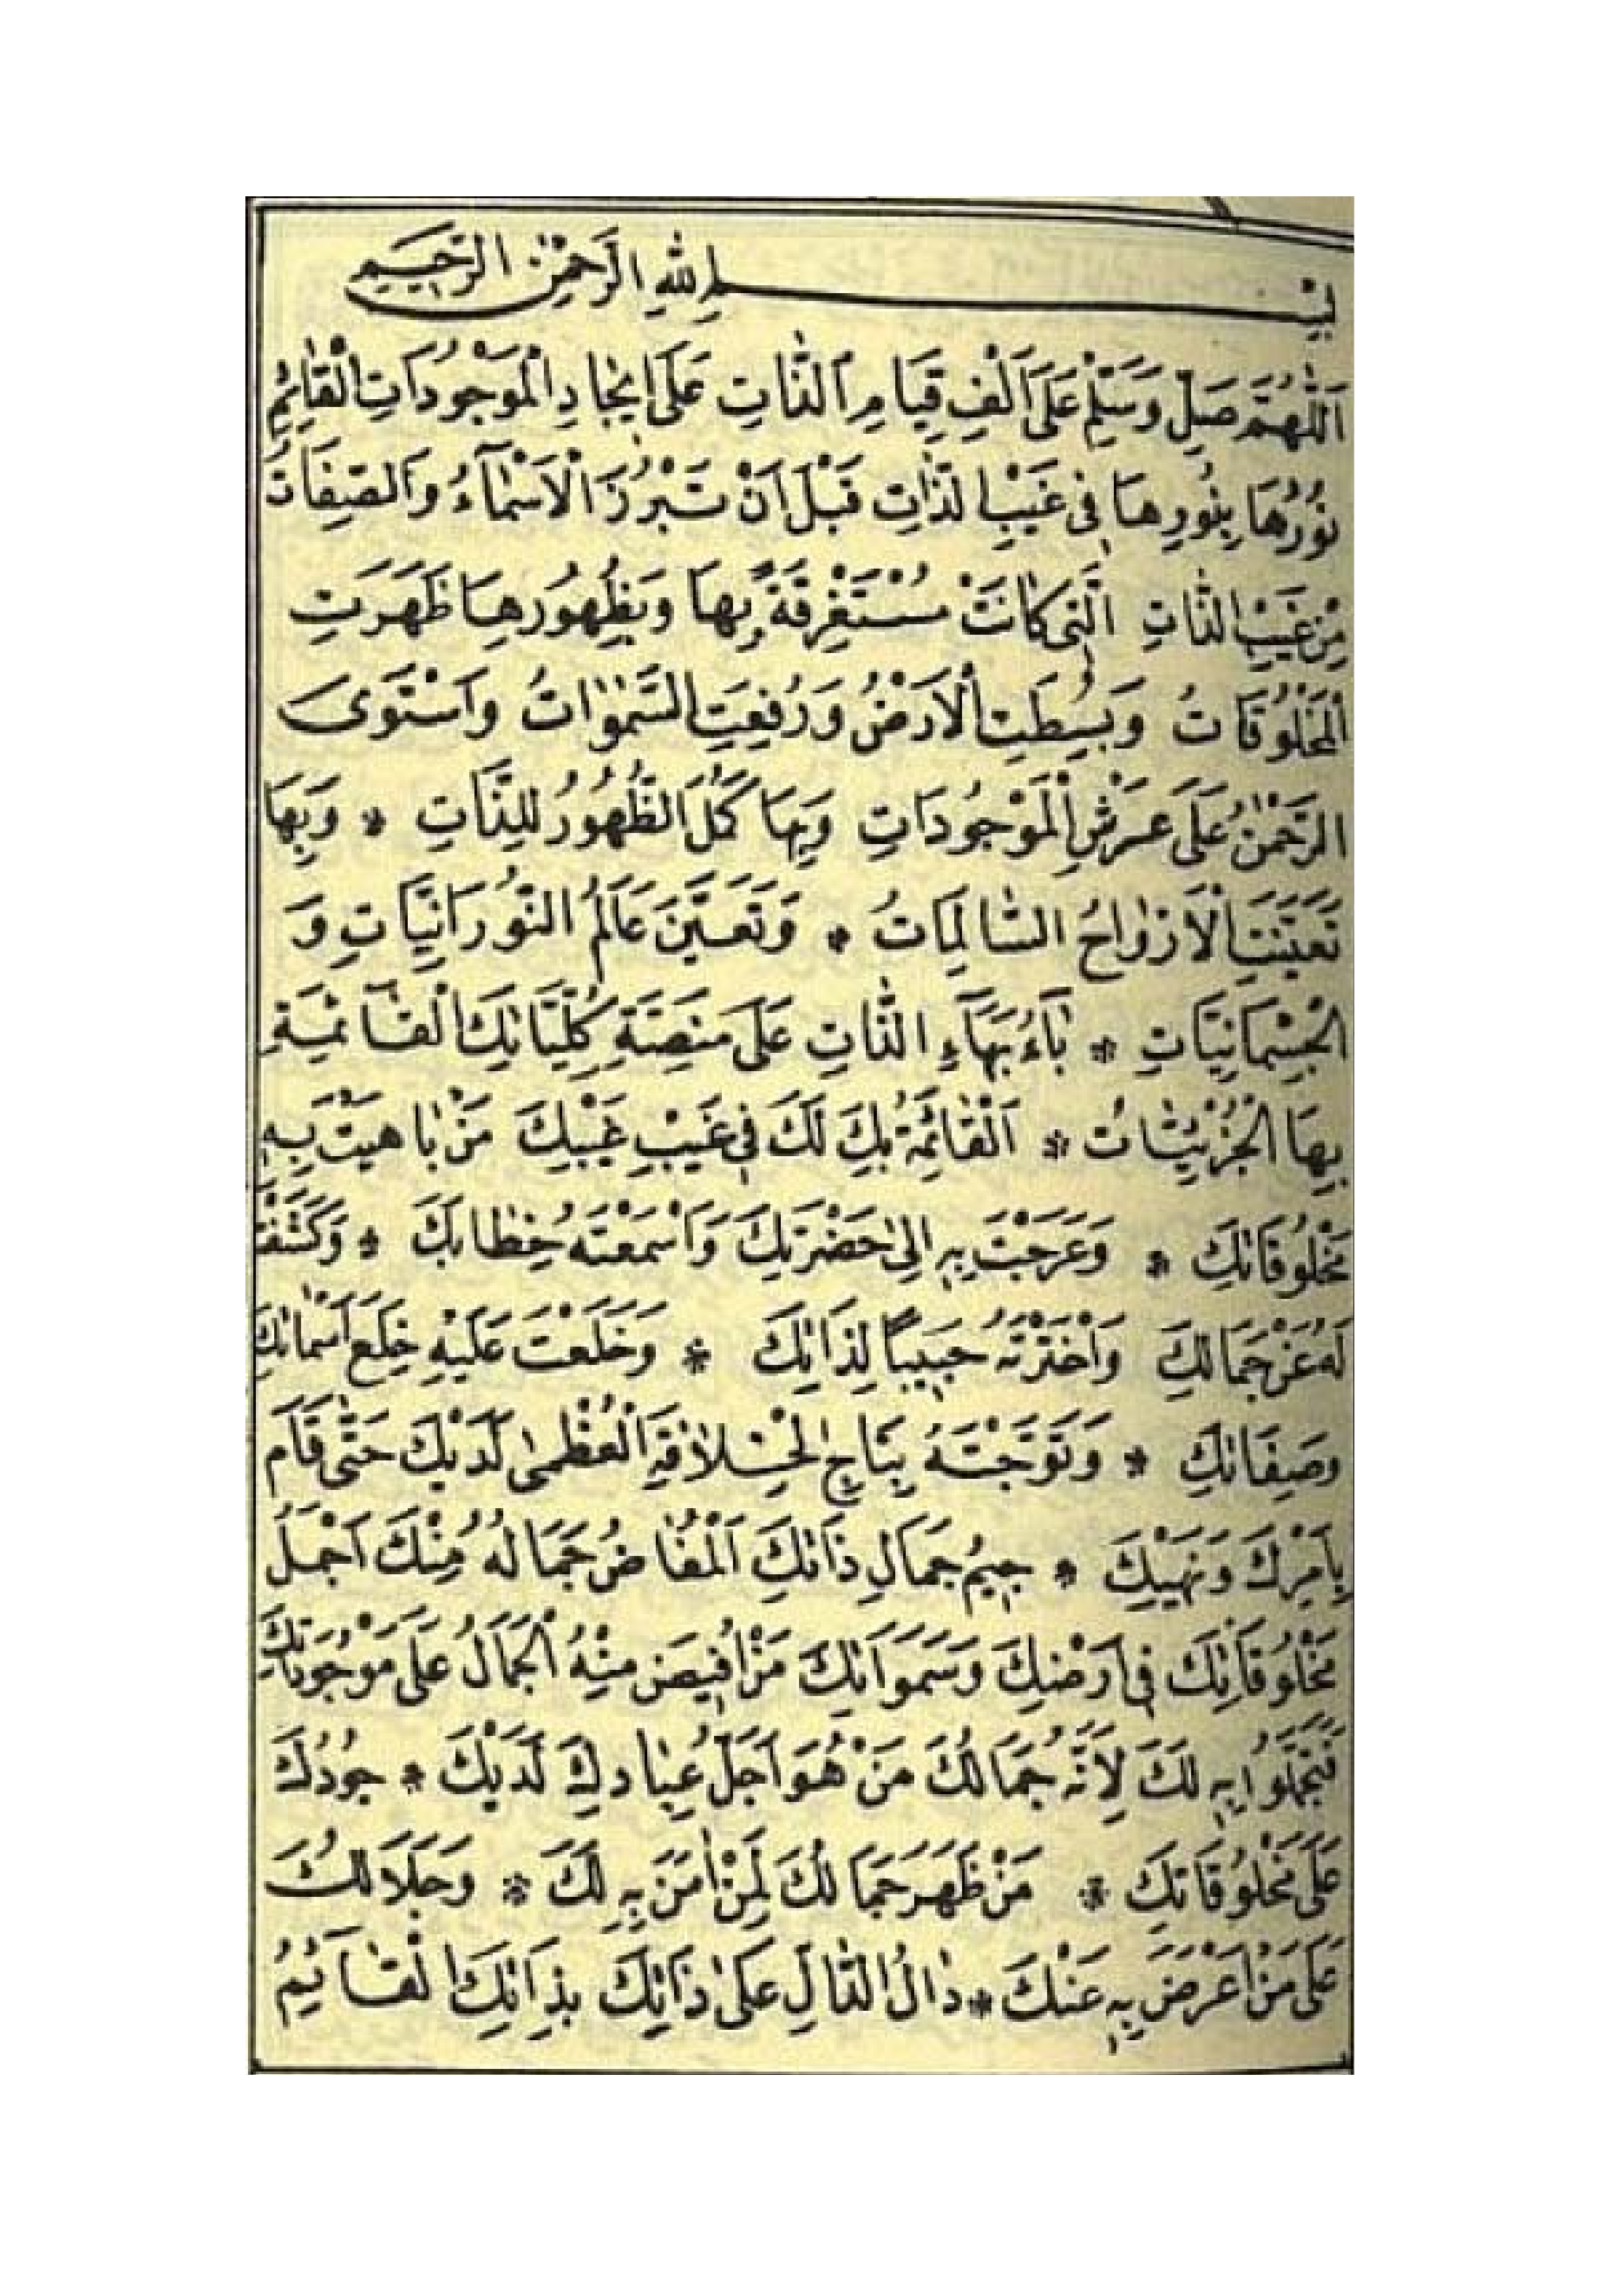 بِسْمِ اللهِ الرَّحْمٰنِ الرَّحِيمِ
اَللّٰهُمَّ صَلِّ وَسَلِّمْ عَلَى اَلْفِ قِيَامِ الذَّاتِ عَلَى اِيجَادِ الْمَوْجُودَاتِ الْقَائِمِ
نُورُهَا بِنُورِهَا فِى غَيْبِ الذَّاتِ قَبْلَ اَنْ تَبْرُزَ الْاَسْمَآءُ وَالصِّفَاتُ
مِنْ غَيْبِ الذَّاتِ الَّتِى كَانَتْ مُسْتَغْرِقَةً بِهَا وَبِظُهُورِهَا ظَهَرَتِ
الْمَخْلُوقَاتُ وَبُسِطَتِ الْاَرْضُ وَرُفِعَتِ السَّمٰوَاتُ وَاسْتَوَى
الرَّحْمٰنُ عَلَى عَرْشِ الْمَوْجُودَاتِ وَبِهَا كَمُلَ الظُّهُورُ لِلذَّاتِ * وَبِهَا
تَعَيَّنَتِ الْاَرْوَاحُ السَّالِمَاتُ * وَتَعَيَّنَ عَالَمُ النُّورَانِيَّاتِ وَ
الْجِسْمَانِيَّاتِ * بَاءُ بَهَآءِ الذَّاتِ عَلَى مَنَصَّةِ كُلِّيَّاتِكَ الْقَآئِمَةِ
بِهَا الْجُزْئِيَّاتُ * اَلْقَائِمَةُ بِكَ لَكَ فِى غَيْبِ غَيْبِكَ مَنْ بَاهَيْتَ بِهِ
مَخْلُوقَاتِكَ * وَعَرَجْتَ بِهِ اِلَى حَضْرَتِكَ وَاَسْمَعْتَهُ خِطَابَكَ * وَكَشَفْتَ
لَهُ عَنْ جَمَالِكَ وَاخْتَرْتَهُ حَبِيبًا لِذَاتِكَ * وَخَلَعْتَ عَلَيْهِ خِلَعَ اَسْمَائِكَ
وَصِفَاتِكَ * وَتَوَّجْتَهُ بِتَاجِ الْخِلَافَةِ الْعُظْمٰى لَدَيْكَ حَتّٰى قَامَ
بِاَمْرِكَ وَنَهْيِكَ * جِيمُ جَمَالِ ذَاتِكَ اَلْمُفَاضُ جَمَالُهُ مِنْكَ اَجْمَلُ
مَخْلُوقَاتِكَ فِى اَرْضِكَ وَسَمَوَاتِكَ مَنْ اُفِيضَ مِنْهُ الْجَمَالُ عَلَى مَوْجُودَاتِكَ
فَتَجَمَّلُوا بِهِ لَكَ لِاَنَّهُ جَمَالُكَ مَنْ هُوَ اَجَلُّ عِبَادِكَ لَدَيْكَ * جُودُكَ
عَلَى مَخْلُوقَاتِكَ * مَنْ ظَهَرَ جَمَالُكَ لِمَنْ اٰمَنَ بِهِ لَكَ * وَجَلَالُكَ
عَلَى مَنْ اَعْرَضَ بِهِ عَنْكَ * دَالُ الدَّالِ عَلَى ذَاتِكَ بِذَاتِكَ الْقَآئِمُ